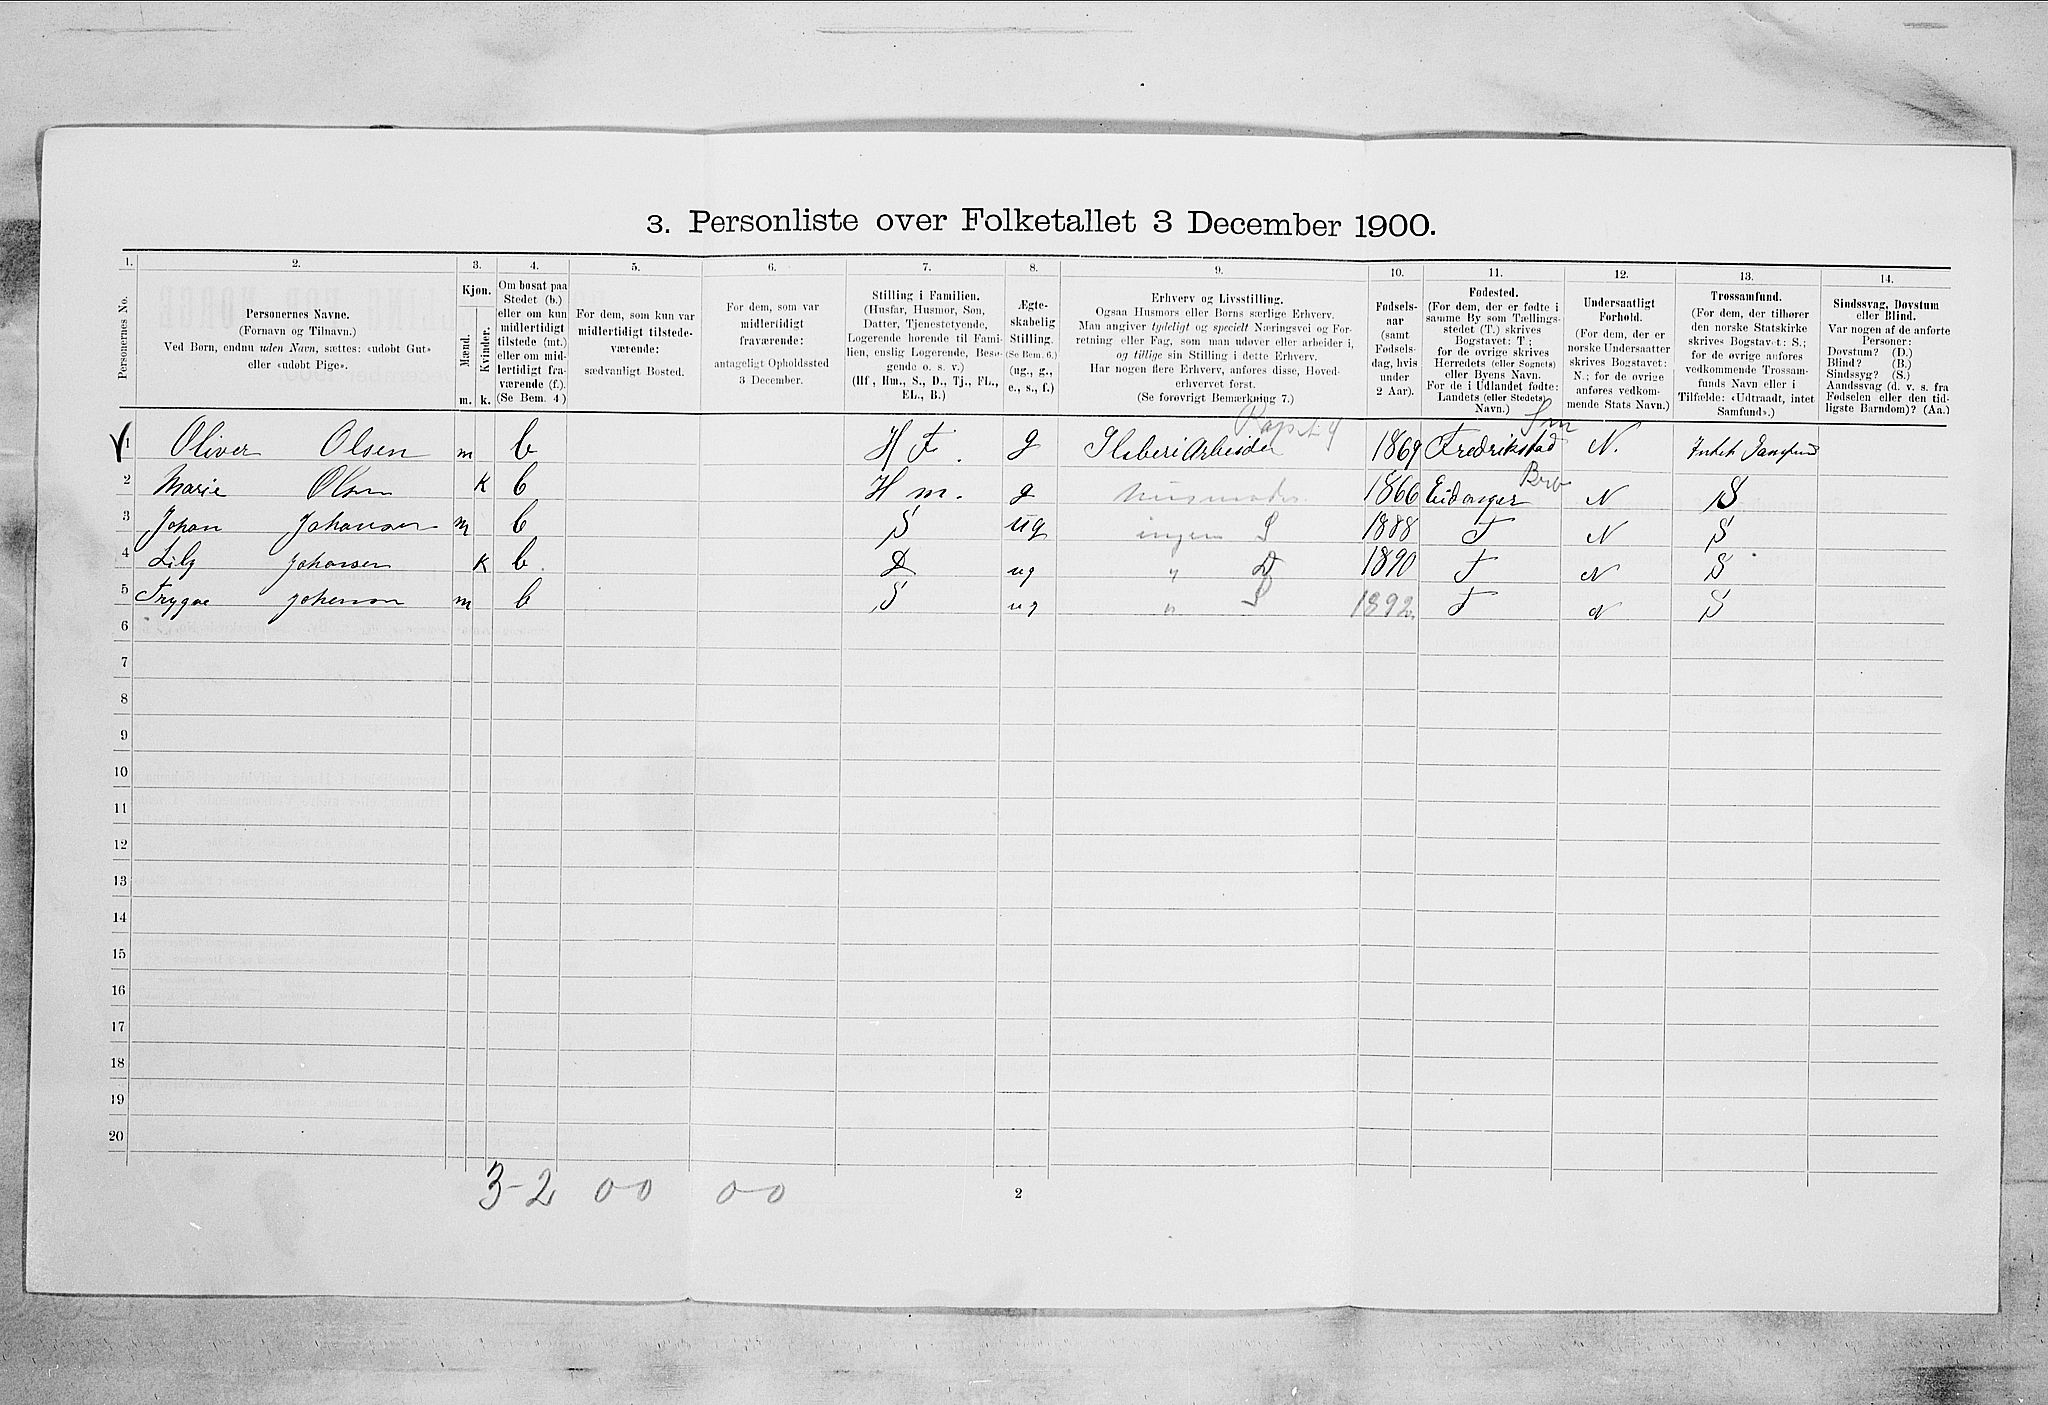 3. Personliste over Folketallet 3 December 1900.
1. 2. 3. 4. 5. 6. 7. 8. 9. 10. 11. 12. 13. 14.
Personernes No.
Personernes Navne.
(Fornavn og Tilnavn.)
Ved Børn, endnu uden Navn, sættes: «udøbt Gut»
eller «udøbt Pige».
Kjøn.
Mænd.
Kvinder.
m. k.
Om bosat paa
Stedet (b.)
eller om kun
midlertidigt
tilstede (mt.)
eller om mid-
lertidigt fra-
værende (f.).
(Se Bem. 4)
For dem, som kun var
midlertidigt tilstede-
værende:
sædvanligt Bosted.
For dem, som var
midlertidigt
fraværende:
antageligt Opholdssted
3 December.
Stilling i Familien.
(Husfar, Husmor, Søn,
Datter, Tjenestetyende,
Logerende hørende til Fami-
lien, enslig Logerende, Besø-
gende o. s. v.)
(Hf, Hm., S., D., Tj., FL.,
EL., B.)
Ægte-
skabelig
Stilling.
(Se Bem. 6.)
(ug., g.,
e., s., f.)
Erhverv og Livsstilling.
Ogsaa Husmors eller Børns særlige Erhverv.
Man angiver tydeligt og specielt Næringsvei og For-
retning eller Fag, som man udøver eller arbeider i,
og tillige sin Stilling i dette Erhverv.
Har nogen flere Erhverv, anføres disse, Hoved-
erhvervet først.
(Se forøvrigt Bemærkning 7.)
Fødsels-
aar
(samt
Fødsels-
dag, hvis
under
2 Aar).
Fødested.
(For dem, der er fødte i
samme By som Tællings-
stedet (T.) skrives
Bogstavet: T;
for de øvrige skrives
Herredets (eller Sognets)
eller Byens Navn.
For de i Udlandet fødte:
Landets (eller Stedets)
Navn.)
Undersaatligt
Forhold.
(For dem, der er
norske Undersaatter
skrives Bogstavet:
N.; for de øvrige
anføres vedkom-
mende Stats Navn.)
Trossamfund.
(For dem, der tilhører
den norske Statskirke
skrives Bogstavet: S.;
for de øvrige anføres
vedkommende Trossam-
funds Navn eller i
Tilfælde: «Udtraadt, intet
Samfund».)
Sindssvag, Døvstum
eller Blind.
Var nogen af de anførte
Personer:
Døvstum? (D.)
Blind? (B.)
Sindssyg? (S.)
Aandssvag (d. v. s. fra
Fødselen eller den tid-
ligste Barndom)? (Aa.)
1 Oliver Olsen m b H F. g 1869 Fredrikstad N.
2 Marie Olsen k b H m. g Husmoder 1866 Eidanger N S
3 Johan Johansen m b S ug ingen S 1888 T N S
4 Lily Johansen k b. D ug " D 1890 T N S
5 Trygve Johansen m b S ug " S 1892 T N S
6
7
8
9
10
11
12
13
14
15
16
17
18
19
20
3-2 0-0 0-0
2